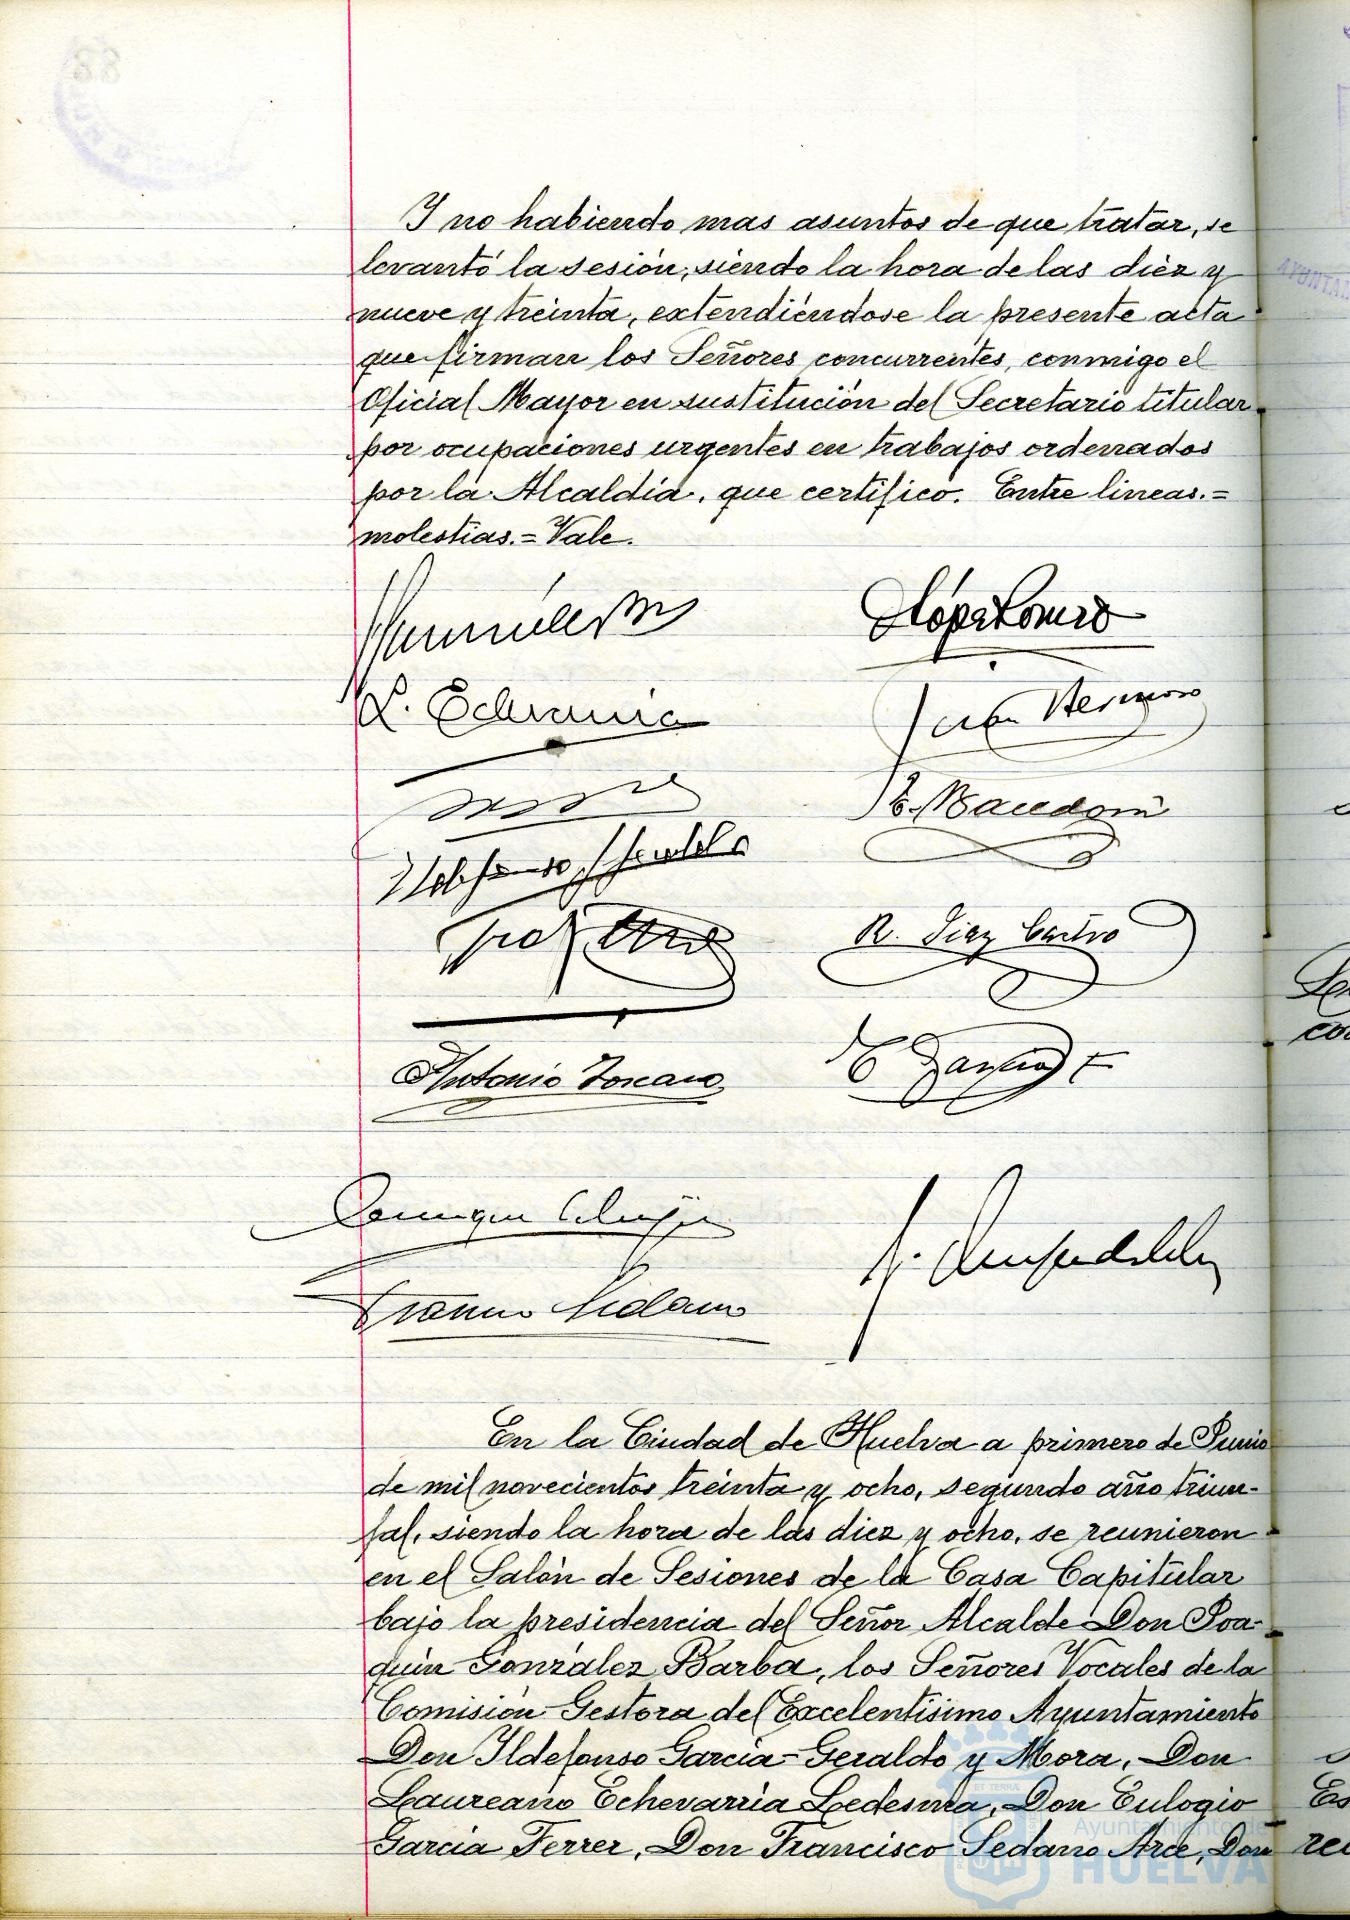 Y no habiendo mas asuntos de que tratar, se
levantó la sesión, siendo la hora de las diéz y
nueve y treinta, extendiéndose la presente acta
que firman los Señores concurrentes, conmigo el
Oficial Mayor en sustitución del Secretario titular
por ocupaciones urgentes en trabajos ordenados
por la Alcaldía, que certifico. Entre lineas.=
molestias.= Vale.
López Romero
L. Echevarria
Juan Hermoso
R. Diaz Castro
Antonio Toscano
E García F
Franco Sedano
En la Ciudad de Huelva a primero de Junio
de mil novecientos treinta y ocho, segundo año triun-
fal, siendo la hora de las diez y ocho, se reunieron
en el Salón de Sesiones de la Casa Capitular
bajo la presidencia del Señor Alcalde Don Joa-
quin González Barba, los Señores Vocales de la
Comisión Gestora del Excelentísimo Ayuntamiento
Don Ildefonso García-Geraldo y Mora, Don
Laureano Echevarria Ledesma, Don Eulogio
García Ferrer, Don Francisco Sedano Arce, Don
Ayuntamiento de
HUELVA